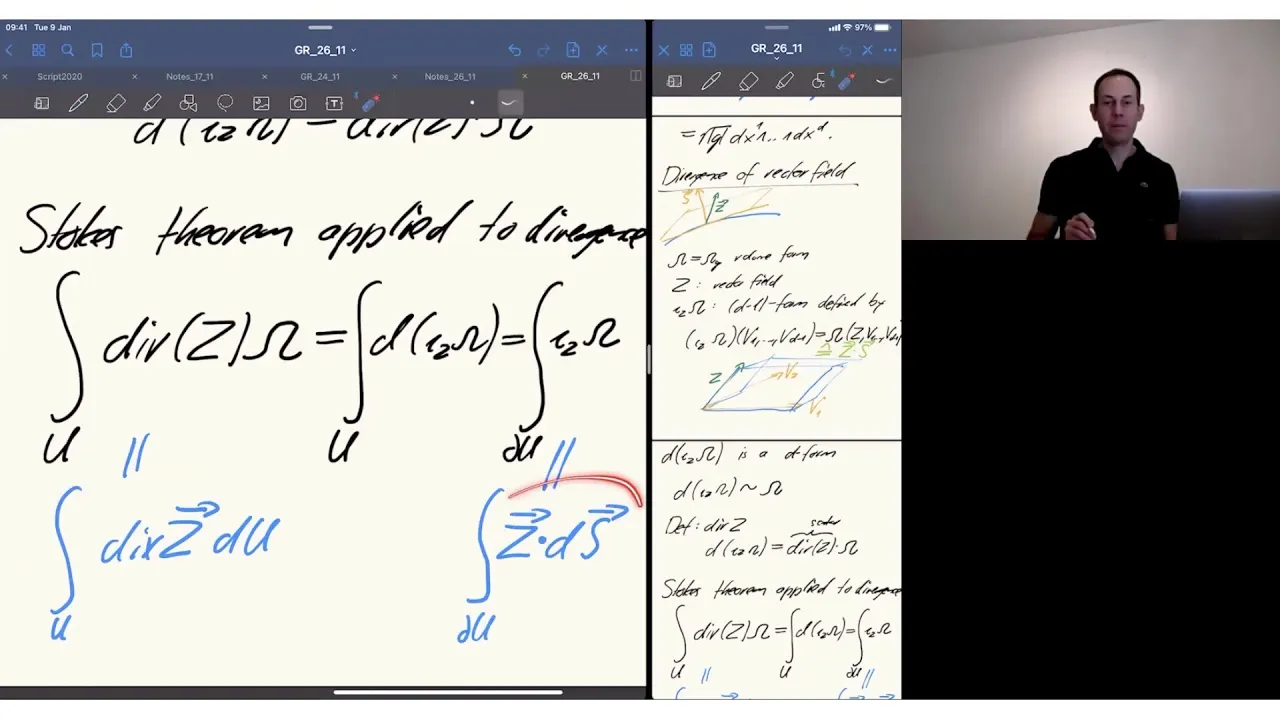 09:41 Tue 9 Jan
97%
GR_26_11
GR_26_11
Script2020
Notes_17_11
GR_24_11
Notes_26_11
GR_26_11
d(ι_Z Ω) = div(Z)·Ω
Stokes theorem applied to divergence
∫_U div(Z)Ω = ∫_U d(ι_Z Ω) = ∫_∂U ι_Z Ω
|| ||
∫_U div Z⃗ dU ∫_∂U Z⃗·dS⃗
= √|g| dx¹∧..∧dx^d.
Divergence of vector field
S⃗ Z⃗
Ω = Ω_g volume form
Z : vector field
ι_Z Ω : (d-1)-form defined by
(ι_Z Ω)(V_1,..,V_d-1) = Ω(Z,V_1,..,V_d-1)
≙ Z⃗·S⃗
Z V_2
V_1
d(ι_Z Ω) is a d-form
d(ι_Z Ω) ~ Ω
Def: div Z scalar
d(ι_Z Ω) = div(Z)·Ω
Stokes theorem applied to divergence
∫_U div(Z)Ω = ∫_U d(ι_Z Ω) = ∫_∂U ι_Z Ω
|| ||